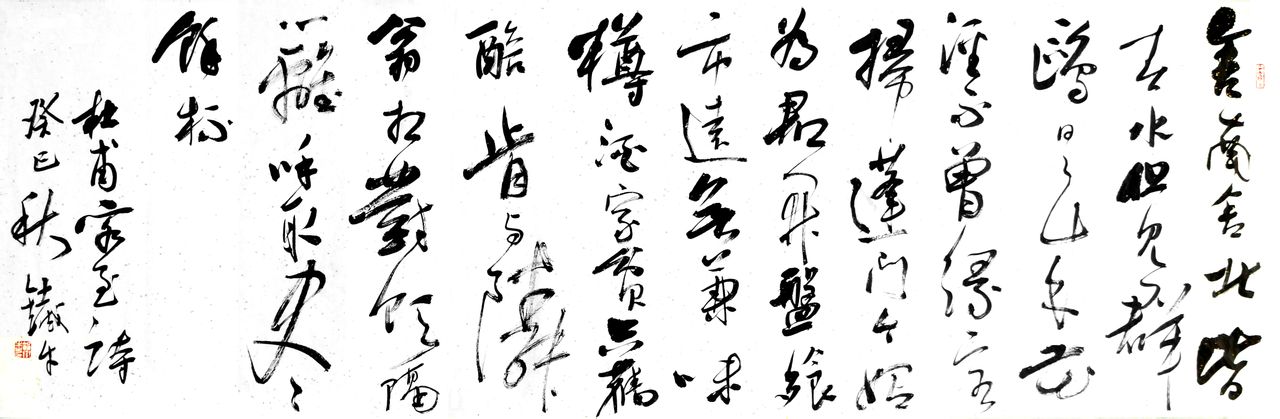 舍南舍北皆
春水但見群
鷗日日來花
徑不曾緣客
掃蓬門今始
為君開盤飧
市遠無兼味
樽酒家貧只舊
醅肯與隣
翁相對飲隔
籬呼取盡
餘杯
杜甫客至詩
癸巳秋 鐵牛